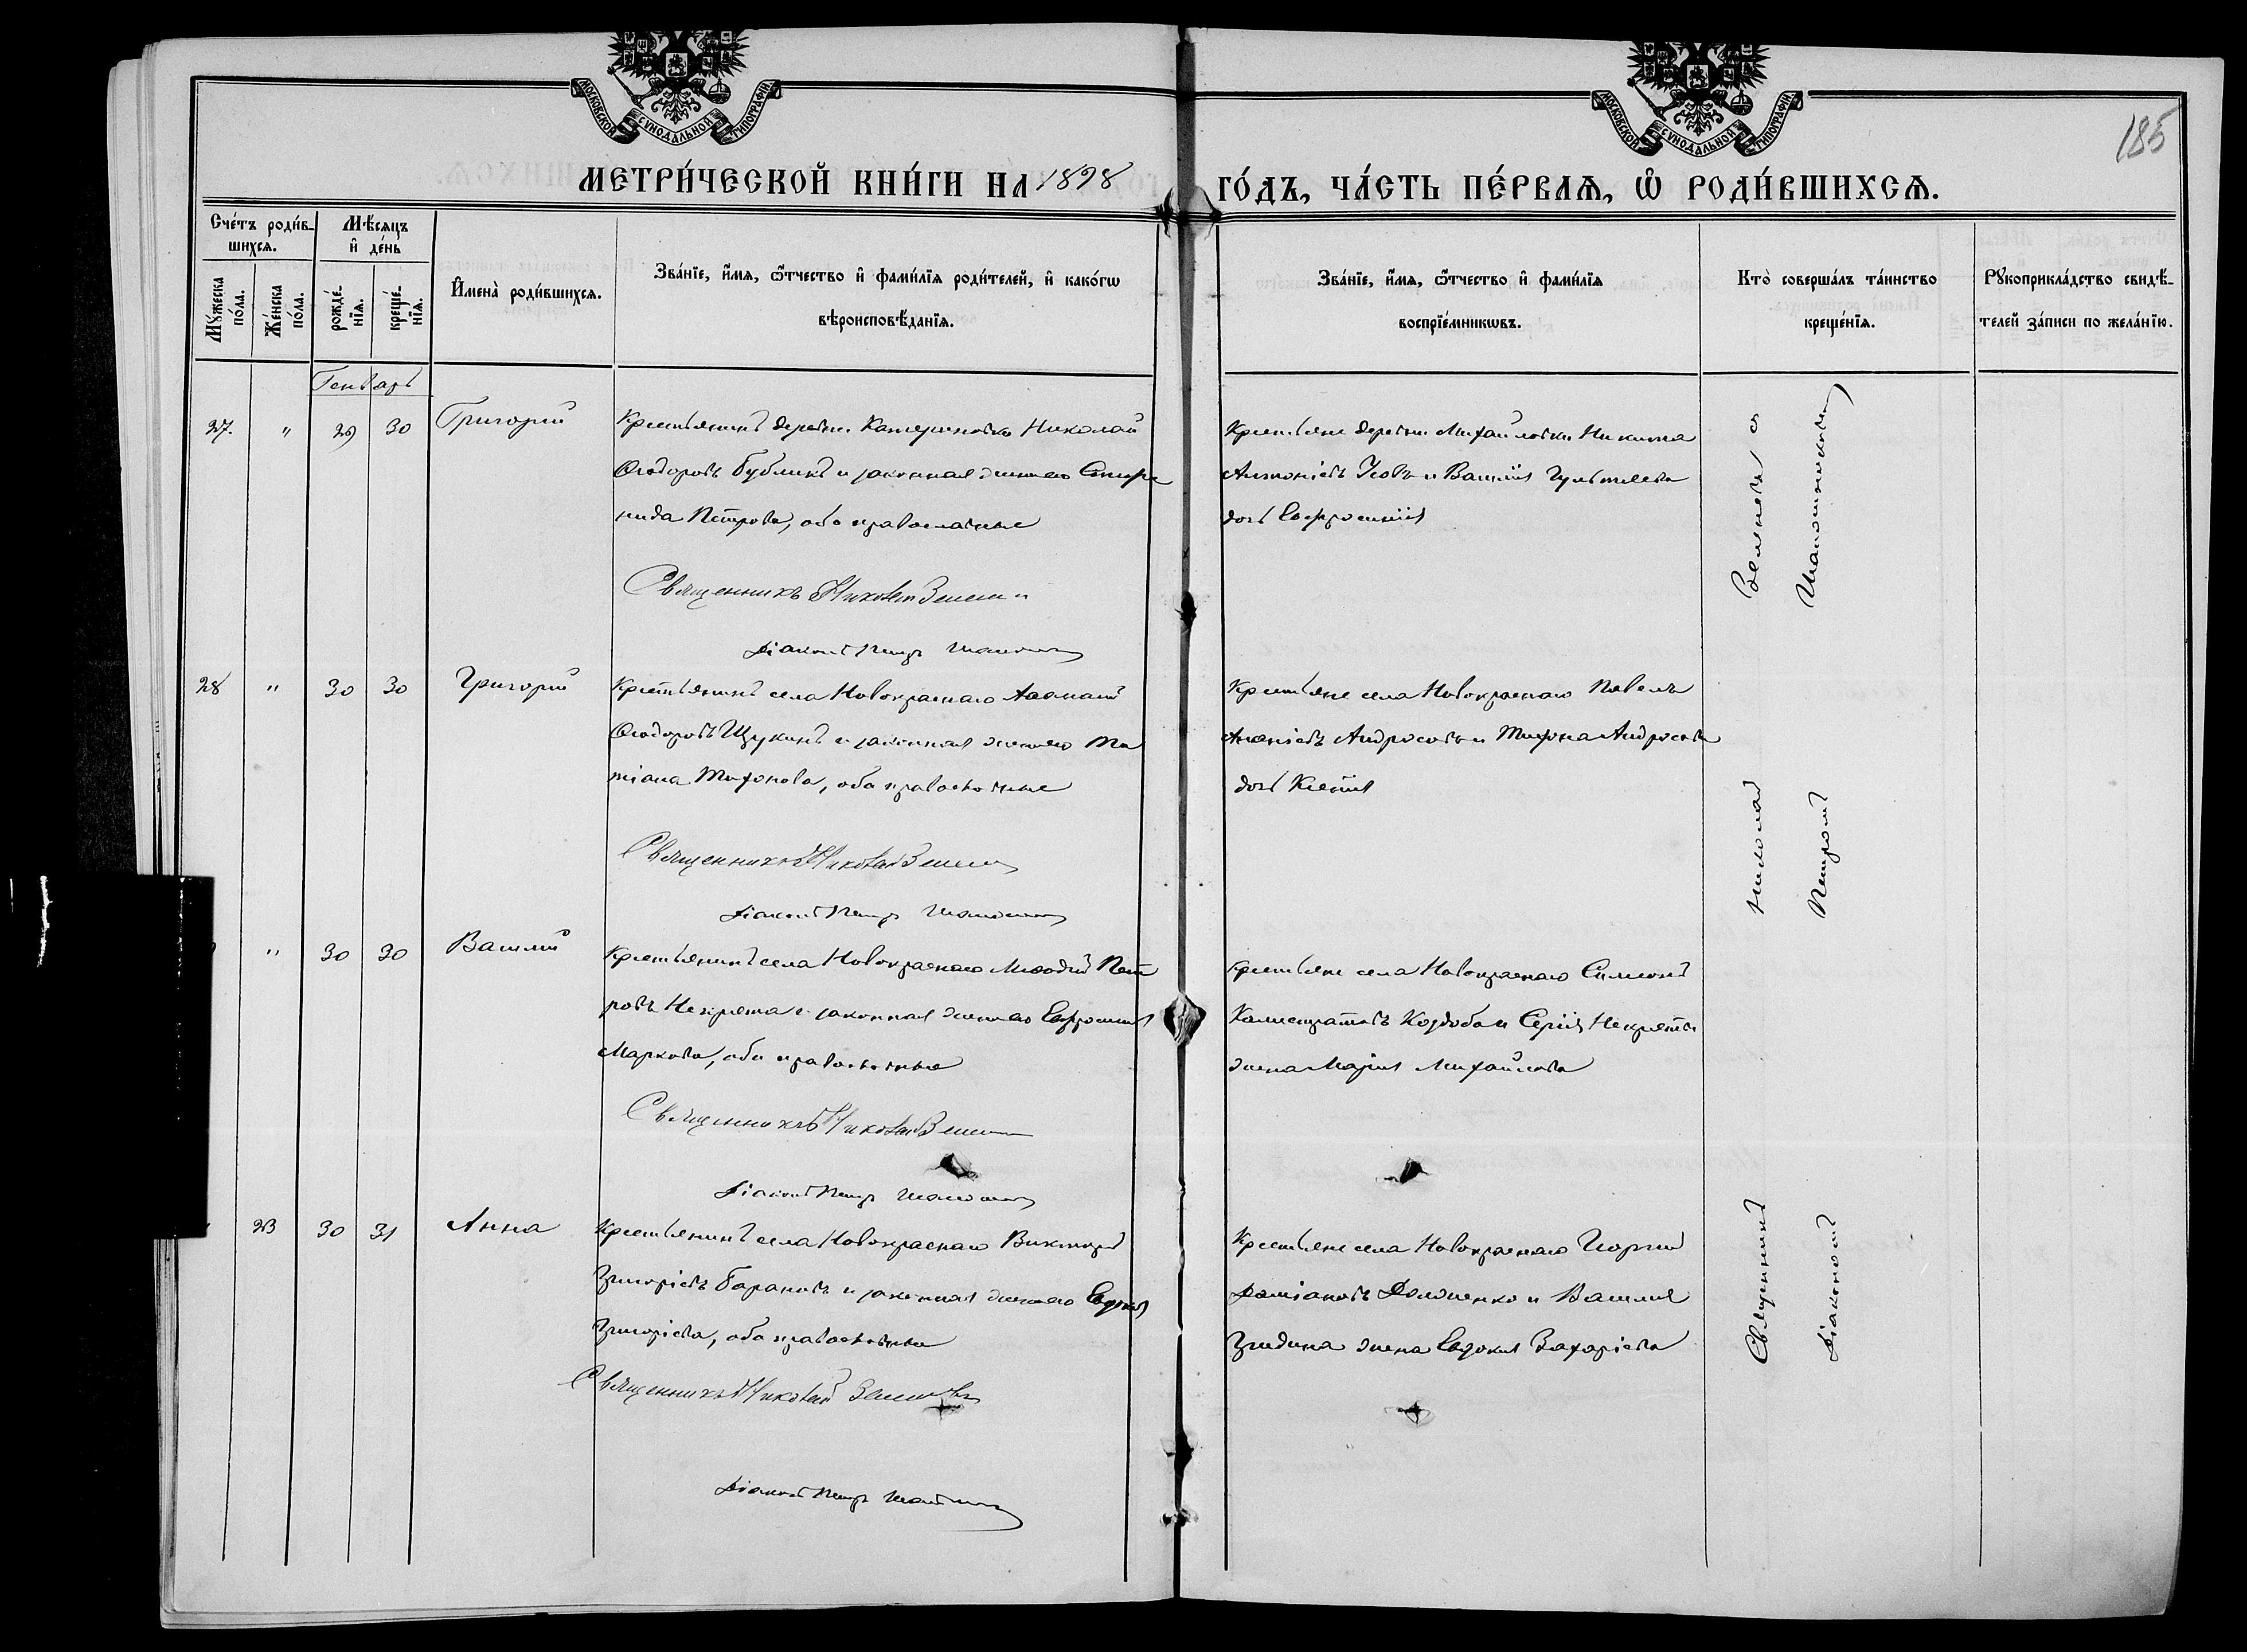 МОСКОВСКОЙ СѴНОДАЛЬНОЙ ТИПОГРАФІИ
МОСКОВСКОЙ СѴНОДАЛЬНОЙ ТИПОГРАФІИ
185
МЕТРИ́ЧЕСКОЙ КНИ́ГИ НА 1898 ГО́ДЪ, ЧА́СТЬ ПЕ́РВАЯ, Ѡ РОДИ́ВШИХСЯ.
Сче́тъ роди́в-
шихся.
Мꙋ́жеска по́ла.
Же́нска по́ла.
Мѣ́сяцъ
и҆ де́нь
рожде́нїя.
креще́нїя.
И҆мена̀ роди́вшихся.
Зва́нїе, и҆́мя, ѻ҆́тчество и҆ фами́лїя роди́телей, и҆ како́гѡ
вѣроисповѣ́данїя.
Зва́нїе, и҆́мя, ѻ҆́тчество и҆ фами́лїя
воспрїе́мникѡвъ.
Кто̀ соверша́лъ та́инство
креще́нїя.
Рꙋкоприкла́дство свидѣ́-
телей за́писи по жела́нїю.
Генварь
27. " 29 30 Григорій
Крестьянинъ деревни Катериновки Николай
Ѳеодоровъ Бубликъ и законная жена его Спири
нида Петрова, оба православные
Священникъ Николай
Діаконъ Петръ
Крестьяне деревни Михайловки Никита
Антоніевъ и Василія
дочь Евфросинія
28 " 30 30 Григорій
Крестьянинъ села Новокраснаго Аѳанасій
Ѳеодоровъ Щукинъ и законная жена его Та
тіана Тихонова, оба православные
Священникъ Николай
Діаконъ Петръ
Крестьяне села Новокраснаго Павелъ
Ананіевъ Андросовъ и Тихона Андросова
дочь Ксенія
" 30 30 Василій
Крестьянинъ села Новокраснаго Меѳодій Пет
ровъ Некрята и законная жена его Евфросинія
Маркова, оба православные
Священникъ Николай
Діаконъ Петръ
Крестьяне села Новокраснаго Симеонъ
Калистратовъ Кордоба и Сергія Некряты
жена Марія Михайлова
23 30 31 Анна
Крестьянинъ села Новокраснаго Викторъ
Григоріевъ Барановъ и законная жена его Евдокія
Григоріева, оба православные
Священникъ Николай
Діаконъ Петръ
Крестьяне села Новокраснаго Георгій
Даміановъ и Василія
жена Евдокія Захаріева
Священникъ Николай
Діакономъ Петромъ